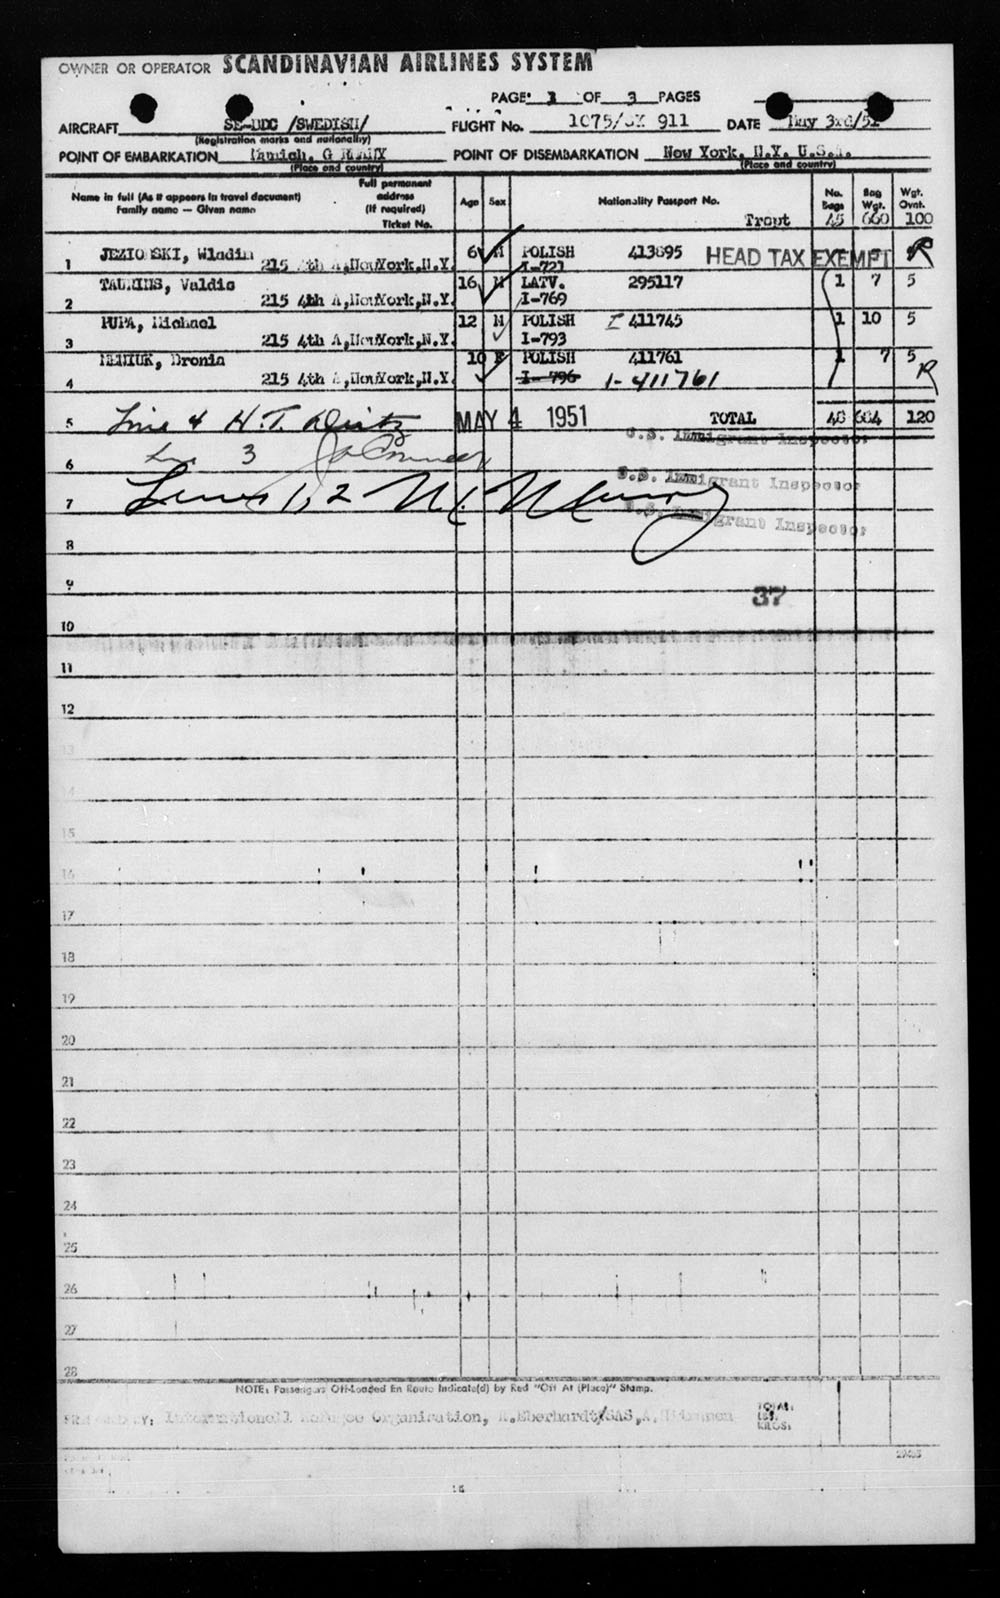 OWNER OR OPERATOR SCANDINAVIAN AIRLINES SYSTEM
PAGE 3 OF 3 PAGES
AIRCRAFT SE-BDC /SWEDISH/ FLIGHT No. 1075/SK 911 DATE May 3rd/51
(Registration marks and nationality)
POINT OF EMBARKATION Munich, POINT OF DISEMBARKATION New York, N.Y. U.S.A.
(Place and country) (Place and country)
Name in full (As it appears in travel document) Family name — Given name Full permanent address (If required) Ticket No. Age Sex Nationality Passport No. No. Bags Bag Wgt. Wgt. Ovnt.
Tropt 45 660 100
1 JEZIORSKI, Wladim 6 M POLISH 413695 HEAD TAX EXEMPT R
215 4th A,NewYork,N.Y. I-721
2 TAURINS, Valdis 16 M LATV. 295117 1 7 5
215 4th A,NewYork,N.Y. I-769
3 PUPA, Michael 12 M POLISH I 411745 1 10 5
215 4th A,NewYork,N.Y. I-793
4 Bronia 10 F POLISH 411761 1 7 5
215 4th A,NewYork,N.Y. I-796 1-411761 R
5 Line 4 H.T. MAY 4 1951 TOTAL 48 684 120
U.S. Immigrant Inspector
6 3
U.S. Immigrant Inspector
7 Lines 1, 2
U.S. Immigrant Inspector
8
9
37
10
11
12
13
14
15
16
17
18
19
20
21
22
23
24
25
26
27
28
NOTE: Passengers Off-Loaded En Route Indicate(d) by Red "Off At (Place)" Stamp.
PREPARED BY: Internationell Refugee Organisation, H.Eberhardt/SAS,
TOTAL:
LBS.
KILOS: